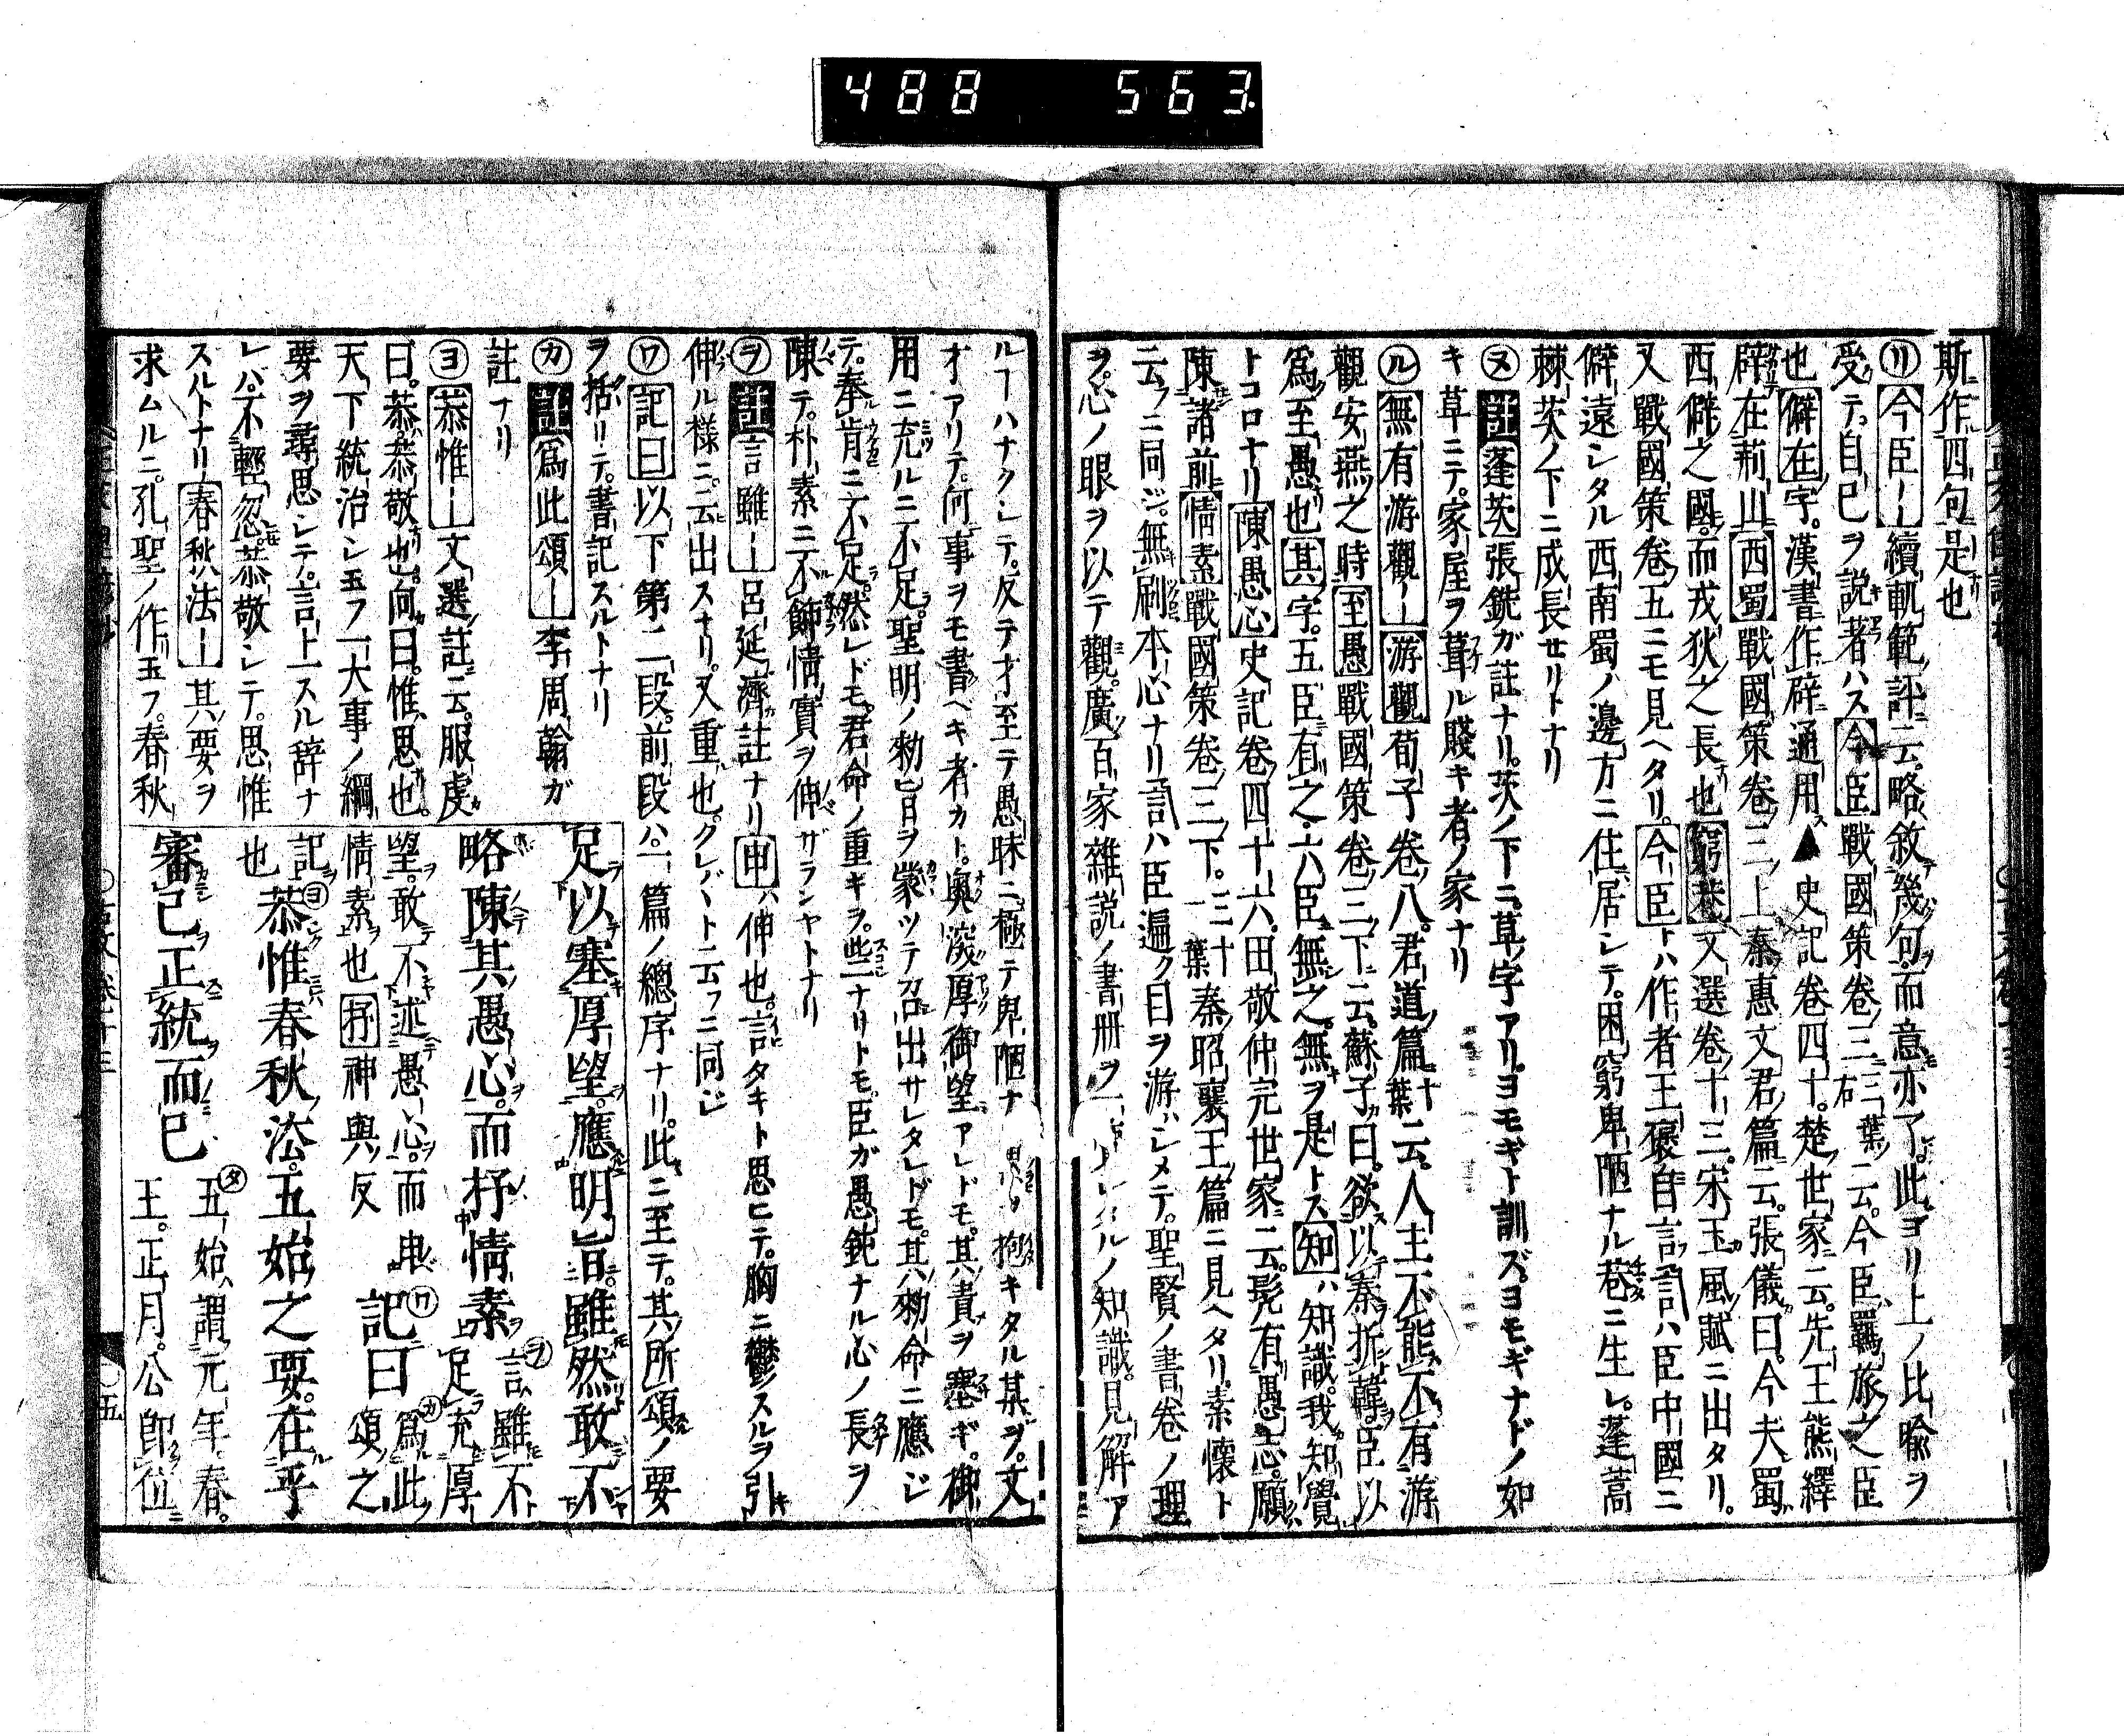 488 563
斯作四句是也
㋷今臣ー續軌範評云略敘幾句而意亦了此ヨリ上ノ比喩ヲ
受テ自己ヲ説著ハス今臣戰國策卷三三葉右云今臣羈旅之臣
也僻在字漢書作辟通用▲史記卷四十楚世家云先王熊繹
辟在荊山西蜀戰國策卷三上秦惠文君篇云張儀曰今夫蜀
西僻之國而戎狄之長也窮巷文選卷十三宋玉風賦ニ出タリ
又戰國策卷五ニモ見ヘタリ今臣トハ作者王襃自言言ハ臣中國ニ
僻遠シタル西南蜀ノ邊方ニ住居シテ困窮卑陋ナル巷ニ生レ蓬蒿
棘茨ノ下ニ成長セリトナリ
㋦註蓬茨張銑ガ註ナリ茨ノ下ニ草字アリヨモギト訓ズヨモギナドノ如
キ草ニテ家屋ヲ葺ル賤キ者ノ家ナリ
㋸無有游觀ー游觀荀子卷八君道篇十葉云人主不能不有游
觀安燕之時至愚戰國策卷三下云蘇子曰欲以秦折韓臣以
爲至愚也其字五臣有之六臣無之無ヲ是トス知ハ知識我知覺
トコロナリ陳愚心史記卷四十六田敬仲完世家ニ云髡有愚志願
陳諸前情素戰國策卷三下三十一葉秦昭襄王篇ニ見ヘタリ素懷ト
云フニ同ジ無刷本心ナリ言ハ臣遍ク目ヲ游バシメテ聖賢ノ書卷ノ理
ヲ心ノ眼ヲ以テ觀廣百家雜説ノ書册ヲ
ノ知識見解ア
ルヿハナクシテ反テ才至テ愚昧ニ極テ卑陋ナ
抱キタル某ヲ文
才アリテ何事ヲモ書ベキ者カト奧深厚御望アレドモ其責ヲ塞ギ御
用ニ充ルニ不足聖明ノ勅旨ヲ蒙ツテ召出サレタレドモ其勅命ニ應ジ
テ奉肯ニ不足然レドモ君命ノ重ギヲ些ナリトモ臣ガ愚鈍ナル心ノ長ヲ
陳テ朴素ニ不飾情實ヲ伸ザランヤトナリ
㋾註言雖ー呂延濟註ナリ申ハ伸也言タキト思ヒテ胸ニ鬱スルヲ引
伸ル樣ニ云出スナリ又重也クレバトニ云フニ同じ
㋻記曰以下第二段前段ハ一篇ノ總序ナリ此ニ至テ其所頌ノ要
ヲ括リテ書記スルトナリ
㋕註爲此頌ー李周翰ガ
註ナリ
㋵恭惟ー文選註云服虔
曰恭恭敬也向曰惟思也
天下統治シ玉フ一大事ノ綱
要ヲ尋思シテ言上スル辞ナ
レバ不輕忽恭敬シテ思惟
スルトナリ春秋法ー其要ヲ
求ムルニ孔聖ノ作玉フ春秋
足以塞厚望應明旨雖然敢不
略陳其愚心而抒情素㋾言雖不足充厚
望敢不述愚心而申情素也抒神與反
記曰㋕爲此頌之記也
恭惟春秋法五始之要在乎
審己正統而已㋟五始謂元年春王正月公即位
五